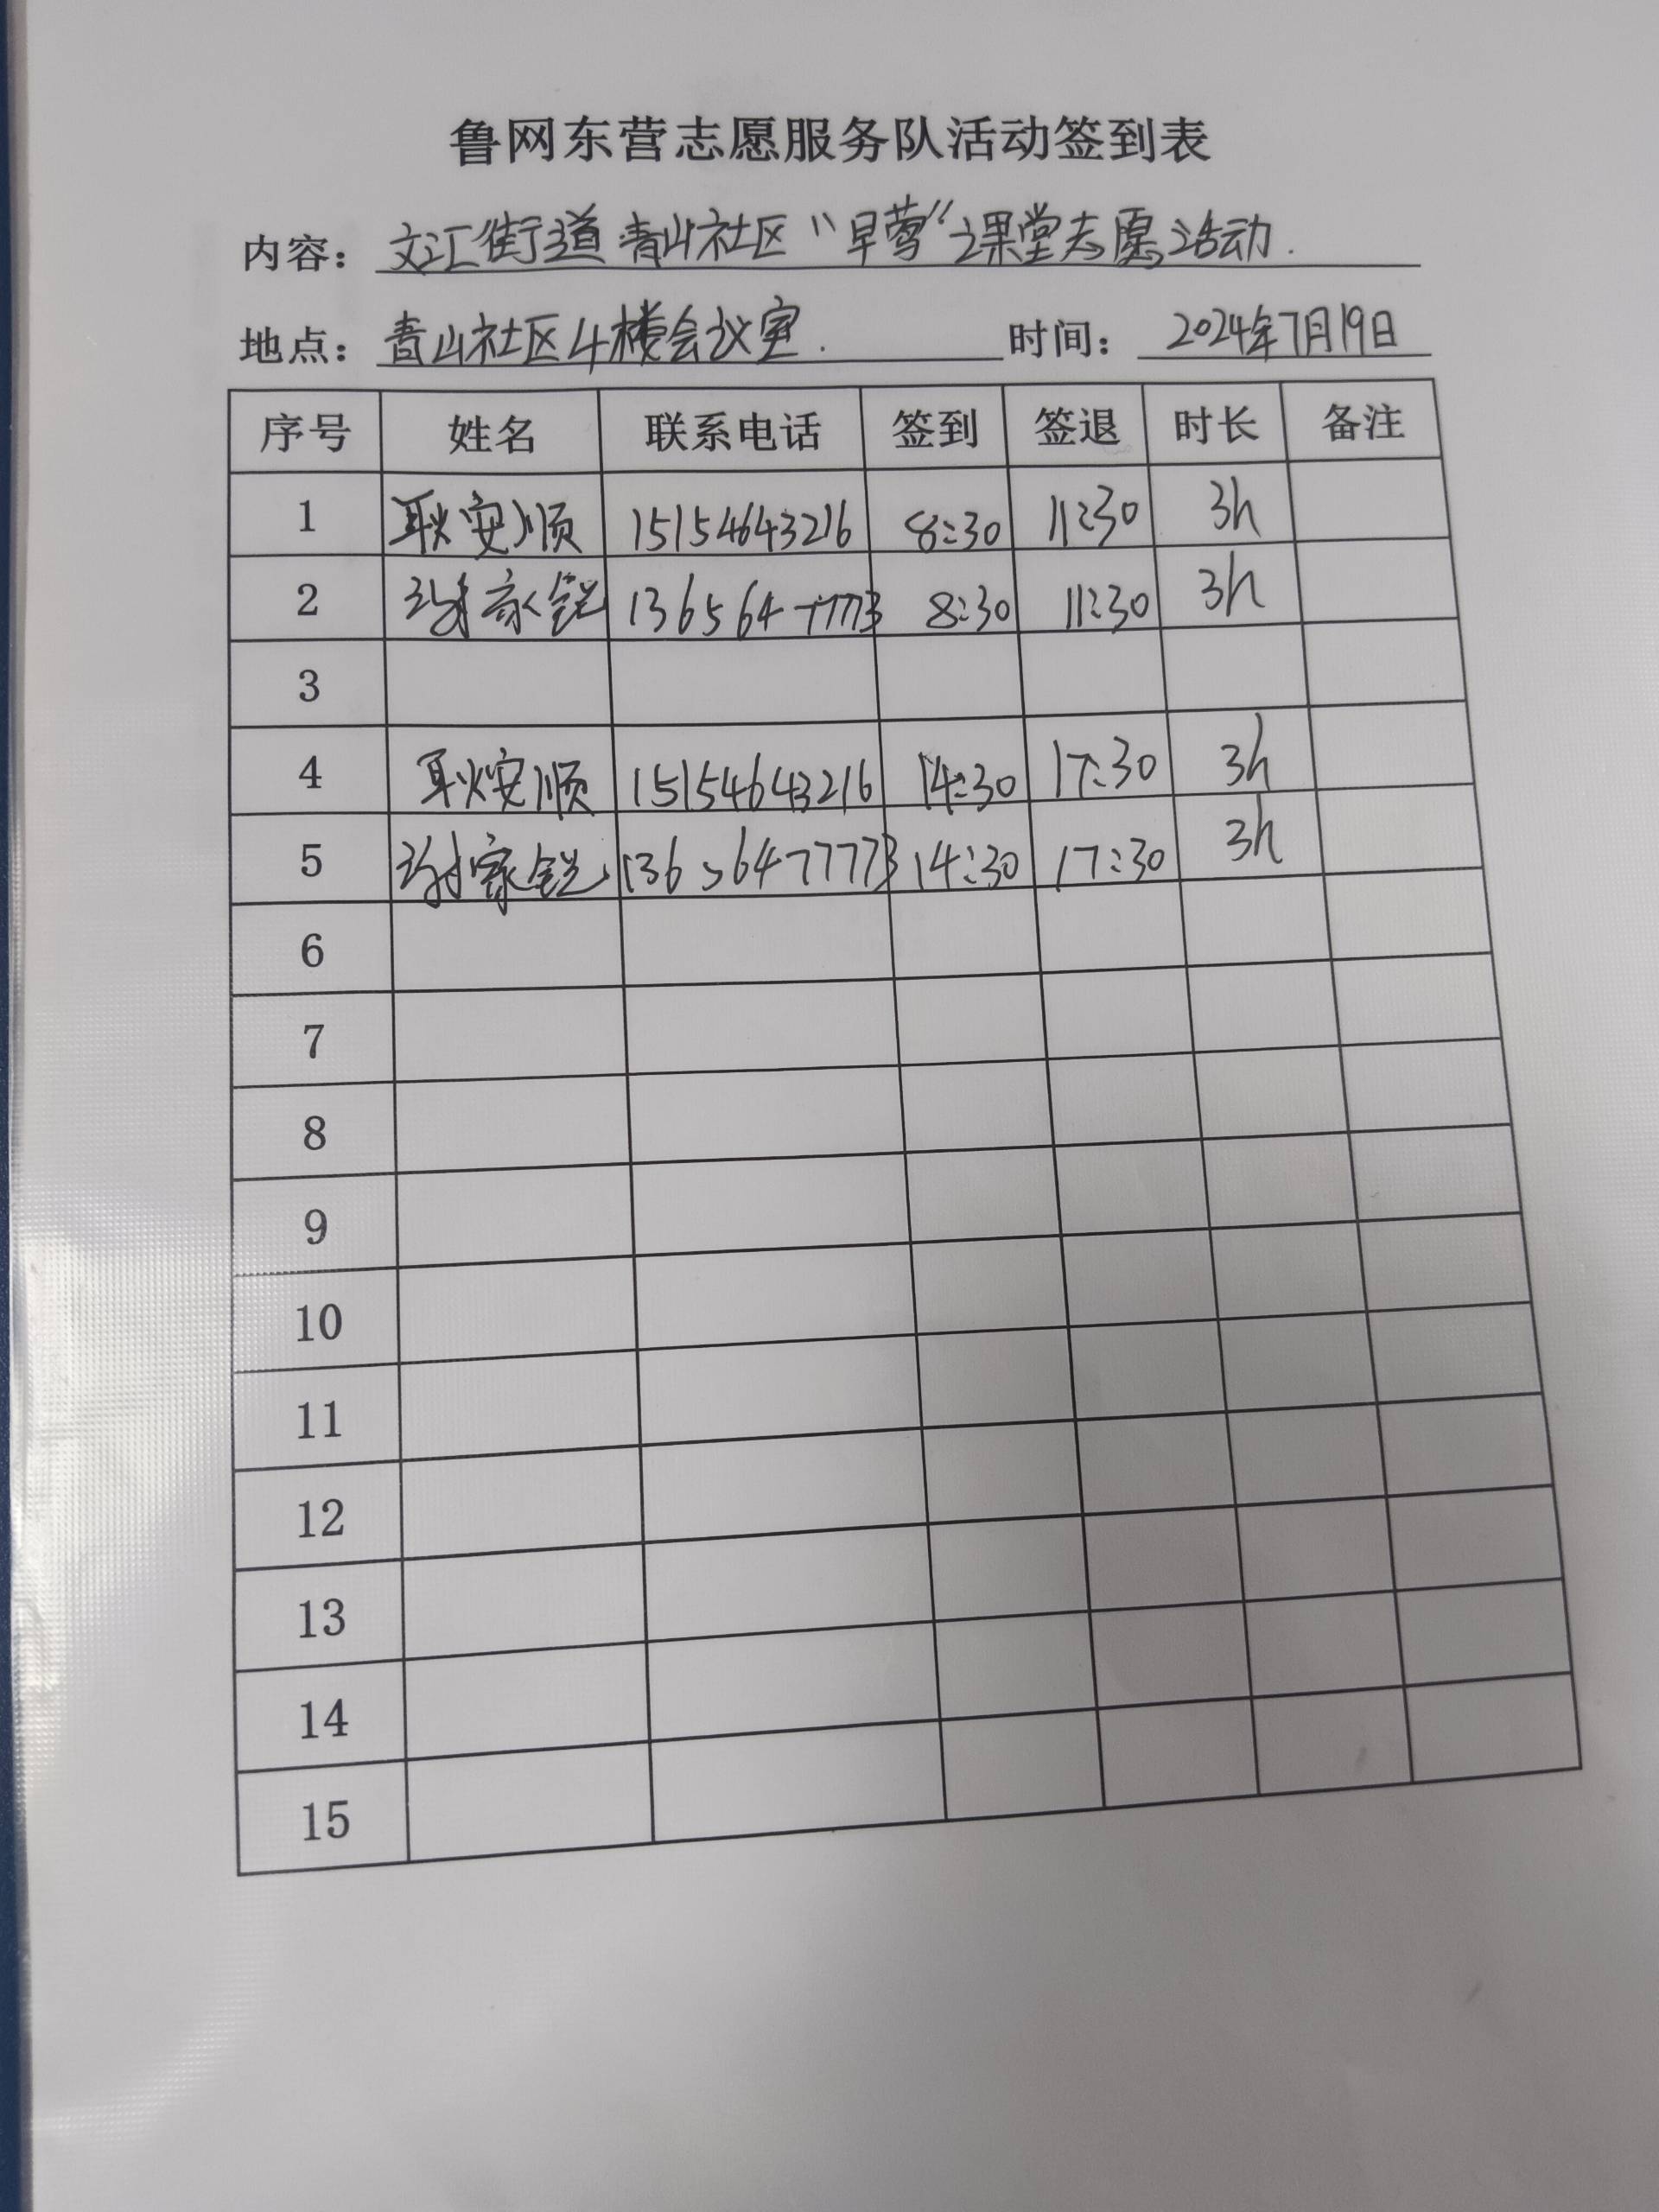 鲁网东营志愿服务队活动签到表
内容：文汇街道青山社区“早莺”课堂志愿活动.
地点：青山社区4楼会议室. 时间：2024年7月19日
序号 姓名 联系电话 签到 签退 时长 备注
1 耿安顺 15154643216 8:30 11:30 3h
2 谢家锐 13656477773 8:30 11:30 3h
3
4 耿安顺 15154643216 14:30 17:30 3h
5 谢家锐 13656477773 14:30 17:30 3h
6
7
8
9
10
11
12
13
14
15